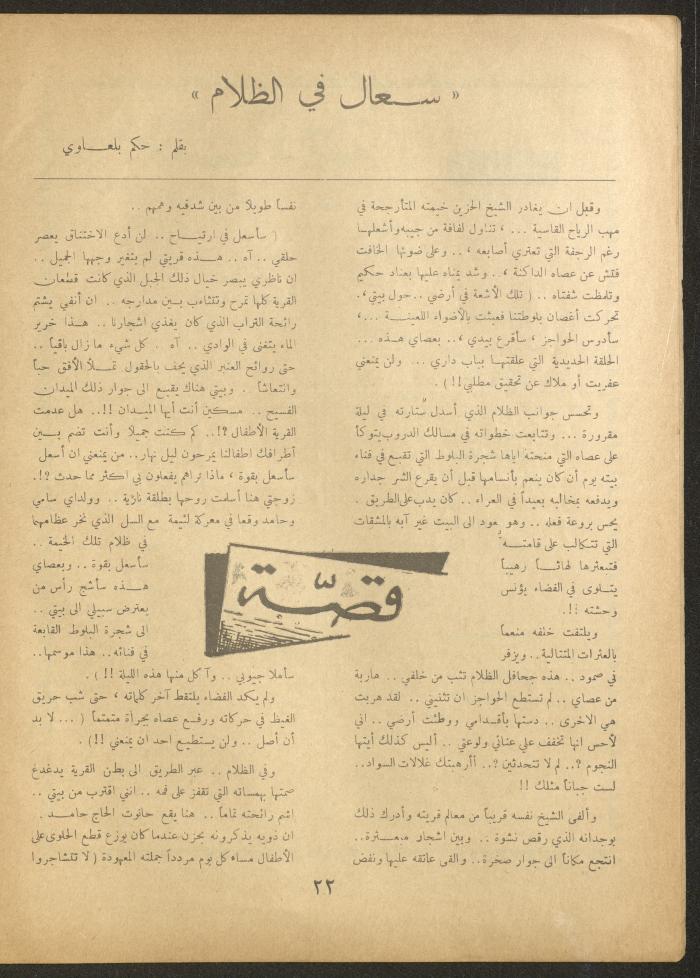 « سعال في الظلام »
بقلم : حكم بلعاوي
وقبل ان يغادر الشيخ الحزين خيمته المتأرجحة في
مهب الرياح القاسية ... ، تناول لفافة من جيبه وأشعلها
رغم الرجفة التي تعتري أصابعه ، .. وعلى ضوئها الخافت
فتش عن عصاه الداكنة ، .. وشد يمناه عليها بعناد حكيم
وتلمظت شفتاه .. ( تلك الأشعة في أرضي .. حول بيتي ،.
تحركت أغصان بلوطتنا فعبثت بالأضواء اللعينة ... ،
سأدوس الحواجز ، سأقرع بيدي ، .. بعصاي هذه ...
الحلقة الحديدية التي علقتها بباب داري ... ولن يمنعني
عفريت أو ملاك عن تحقيق مطلبي !! ) .
وتحسس جوانب الظلام الذي أسدل ستارته في ليلة
مقرورة ... وتتابعت خطواته في مسالك الدروب يتوكأ
على عصاه التي منحته اياها شجرة البلوط التي تقبع في فناء
بيته يوم أن كان ينعم بأنسامها قبل أن يقرع الشر جداره
ويدفعه بمخالبه بعيداً في العراء .. كان يدب على الطريق .
يحس بروعة فعله .. وهو يعود الى البيت غير آبه بالمشقات
التي تتكالب على قامته
فتبعثرها لهاثاً رهيباً
يتلوى في الفضاء يؤنس
وحشته !!.
ويلتفت خلفه منعماً
بالعثرات المتتالية .. ويزفر
في صمود .. هذه جحافل الظلام تثب من خلفي .. هاربة
من عصاي .. لم تستطع الحواجز ان تثنيني .. لقد هربت
هي الاخرى .. دستها بأقدامي ووطئت أرضي .. اني
لأحس انها تخفف علي عنائي ولوعتي .. أليس كذلك أيتها
النجوم ؟.. لم لا تتحدثين ؟.. أأرهبتك غلالات السواد ..
لست جباناً مثلك !!
وألفى الشيخ نفسه قريباً من معالم قريته وأدرك ذلك
بوجدانه الذي رقص نشوة .. وبين اشجار مبعثرة ..
انتجع مكاناً الى جوار صخرة .. والقى عاتقه عليها ونفض
نفساً طويلاً من بين شدقيه وهمهم ..
( سأسعل في ارتياح .. لن أدع الاختناق يعصر
حلقي .. آه .. هذه قريتي لم يتغير وجهها الجميل ..
ان ناظري يبصر خيال ذلك الجبل الذي كانت قطعان
القرية كلها تمرح وتتثاءب بين مدارجه .. ان أنفي يشتم
رائحة التراب الذي كان يغذي اشجارنا .. هذا خرير
الماء يتغنى في الوادي .. آه . كل شيء ما زال باقياً ..
حتى روائح العنبر الذي يحف بالحقول تملأ الأفق حباً
وانتعاشاً . وبيتي هناك يقبع الى جوار ذلك الميدان
الفسيح .. مسكين أنت أيها الميدان !!.. هل عدمت
القرية الأطفال ؟!.. كم كنت جميلا وأنت تضم بين
أطرافك اطفالنا يمرحون ليل نهار .. من يمنعني ان أسعل
سأسعل بقوة ، ماذا تراهم يفعلون بي اكثر مما حدث ؟!.
زوجتي هنا أسلمت روحها بطلقة نارية .. وولداي سامي
وحامد وقعا في معركة لئيمة مع السل الذي نخر عظامهما
في ظلام تلك الخيمة ..
سأسعل بقوة .. وبعصاي
هذه سأشج رأس من
يعترض سبيلي الى بيتي ..
الى شجرة البلوط القابعة
في فنائه .. هذا موسمها ..
سأملأ جيوبي .. وآكل منها هذه الليلة !! ) .
ولم يكد الفضاء يلتقط آخر كلماته ، حتى شب حريق
الغيظ في حركاته ورفع عصاه بجرأة متمتماً ( ... لا بد
أن أصل .. ولن يستطيع احد ان يمنعني !! ) .
وفي الظلام .. عبر الطريق الى بطن القرية يدغدغ
صمتها بهمساته التي تقفز على فمه .. انني اقترب من بيتي ..
اشم رائحته تماماً .. هنا يقع حانوت الحاج حامد .
ان ذويه يذكرونه بحزن عندما كان يوزع قطع الحلوى على
الأطفال مساء كل يوم مردداً جملته المعهودة ( لا تتشاجروا
قصّة
٢٢